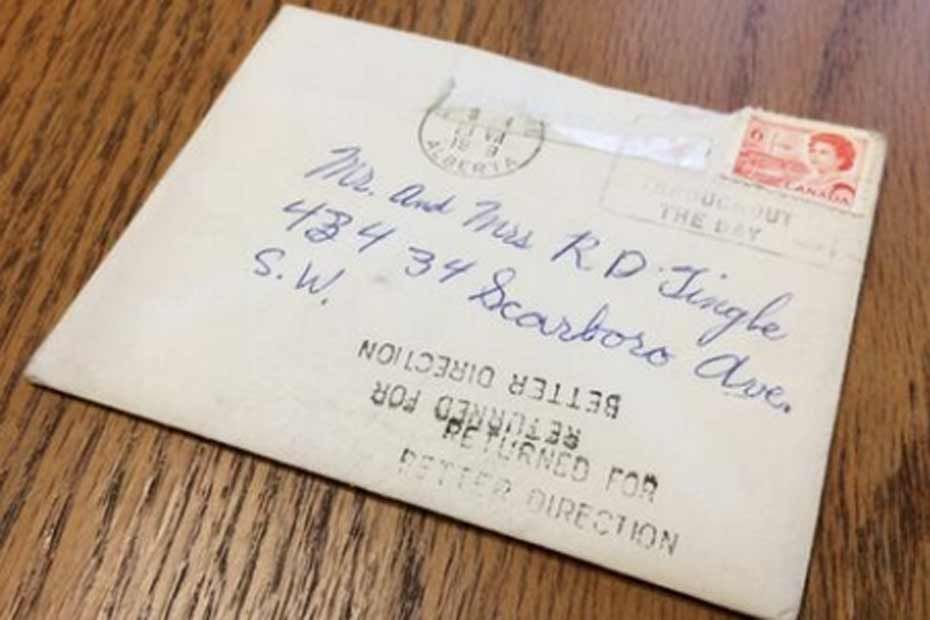 ALBERTA
6
CANADA
THROUGHOUT
THE DAY
Mr. And Mrs R D. Tingle
434 34 Scarboro Ave.
S.W.
BETTER DIRECTION
RETURNED FOR
RETURNED FOR
BETTER DIRECTION